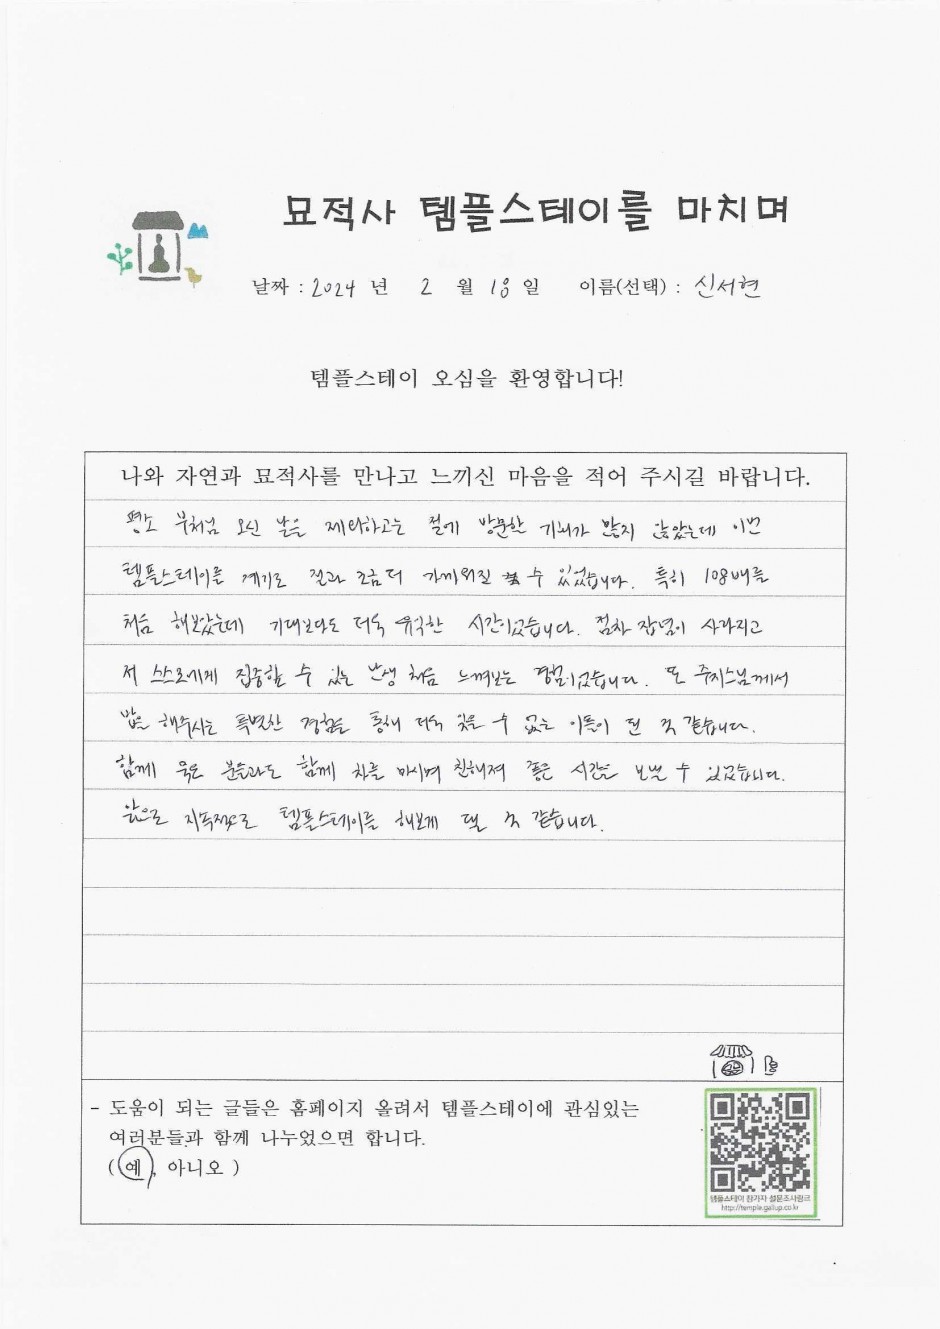 묘적사 템플스테이를 마치며
날짜 : 2024 년 2 월 18 일 이름(선택) : 신서현
템플스테이 오심을 환영합니다!
나와 자연과 묘적사를 만나고 느끼신 마음을 적어 주시길 바랍니다.
평소 부처님 오신 날을 제외하고는 절에 방문한 기억가 많지 않았는데 이번
템플스테이를 계기로 절과 조금 더 가까워질 수 있었습니다. 특히 108배를
처음 해보았는데 기대보다도 더욱 유익한 시간이었습니다. 점차 잡념이 사라지고
저 스스로에게 집중할 수 있는 난생 처음 느껴보는 경험이었습니다. 또 주지스님께서
밥을 해주시는 특별한 경험을 통해 더욱 잊을 수 없는 이틀이 된 것 같습니다.
함께 묵은 분들과도 함께 차를 마시며 친해져 좋은 시간을 보낼 수 있었습니다.
앞으로 지속적으로 템플스테이를 해보게 될 것 같습니다.
- 도움이 되는 글들은 홈페이지 올려서 템플스테이에 관심있는
여러분들과 함께 나누었으면 합니다.
( 예, 아니오 )
템플스테이 참가자 설문조사링크
http://temple.gallup.co.kr